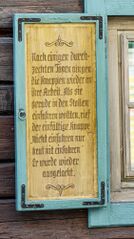 Nach einigen durch-
zechten Tagen gingen
die Knappen wieder an
ihre Arbeit. Als sie
gerade in den Stollen
einfahren wollten, rief
der einfältige Knappe
Nicht einfahren nur
heut nit einfahren
Er wurde wieder
ausgelacht.